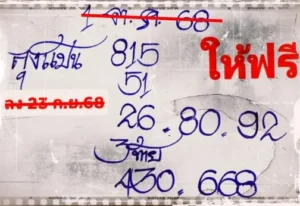 1 ต.ค. 68
ให้ฟรี
815
51
ลง 23 ก.ย.68
26.80.92
3ท้าย
430.668